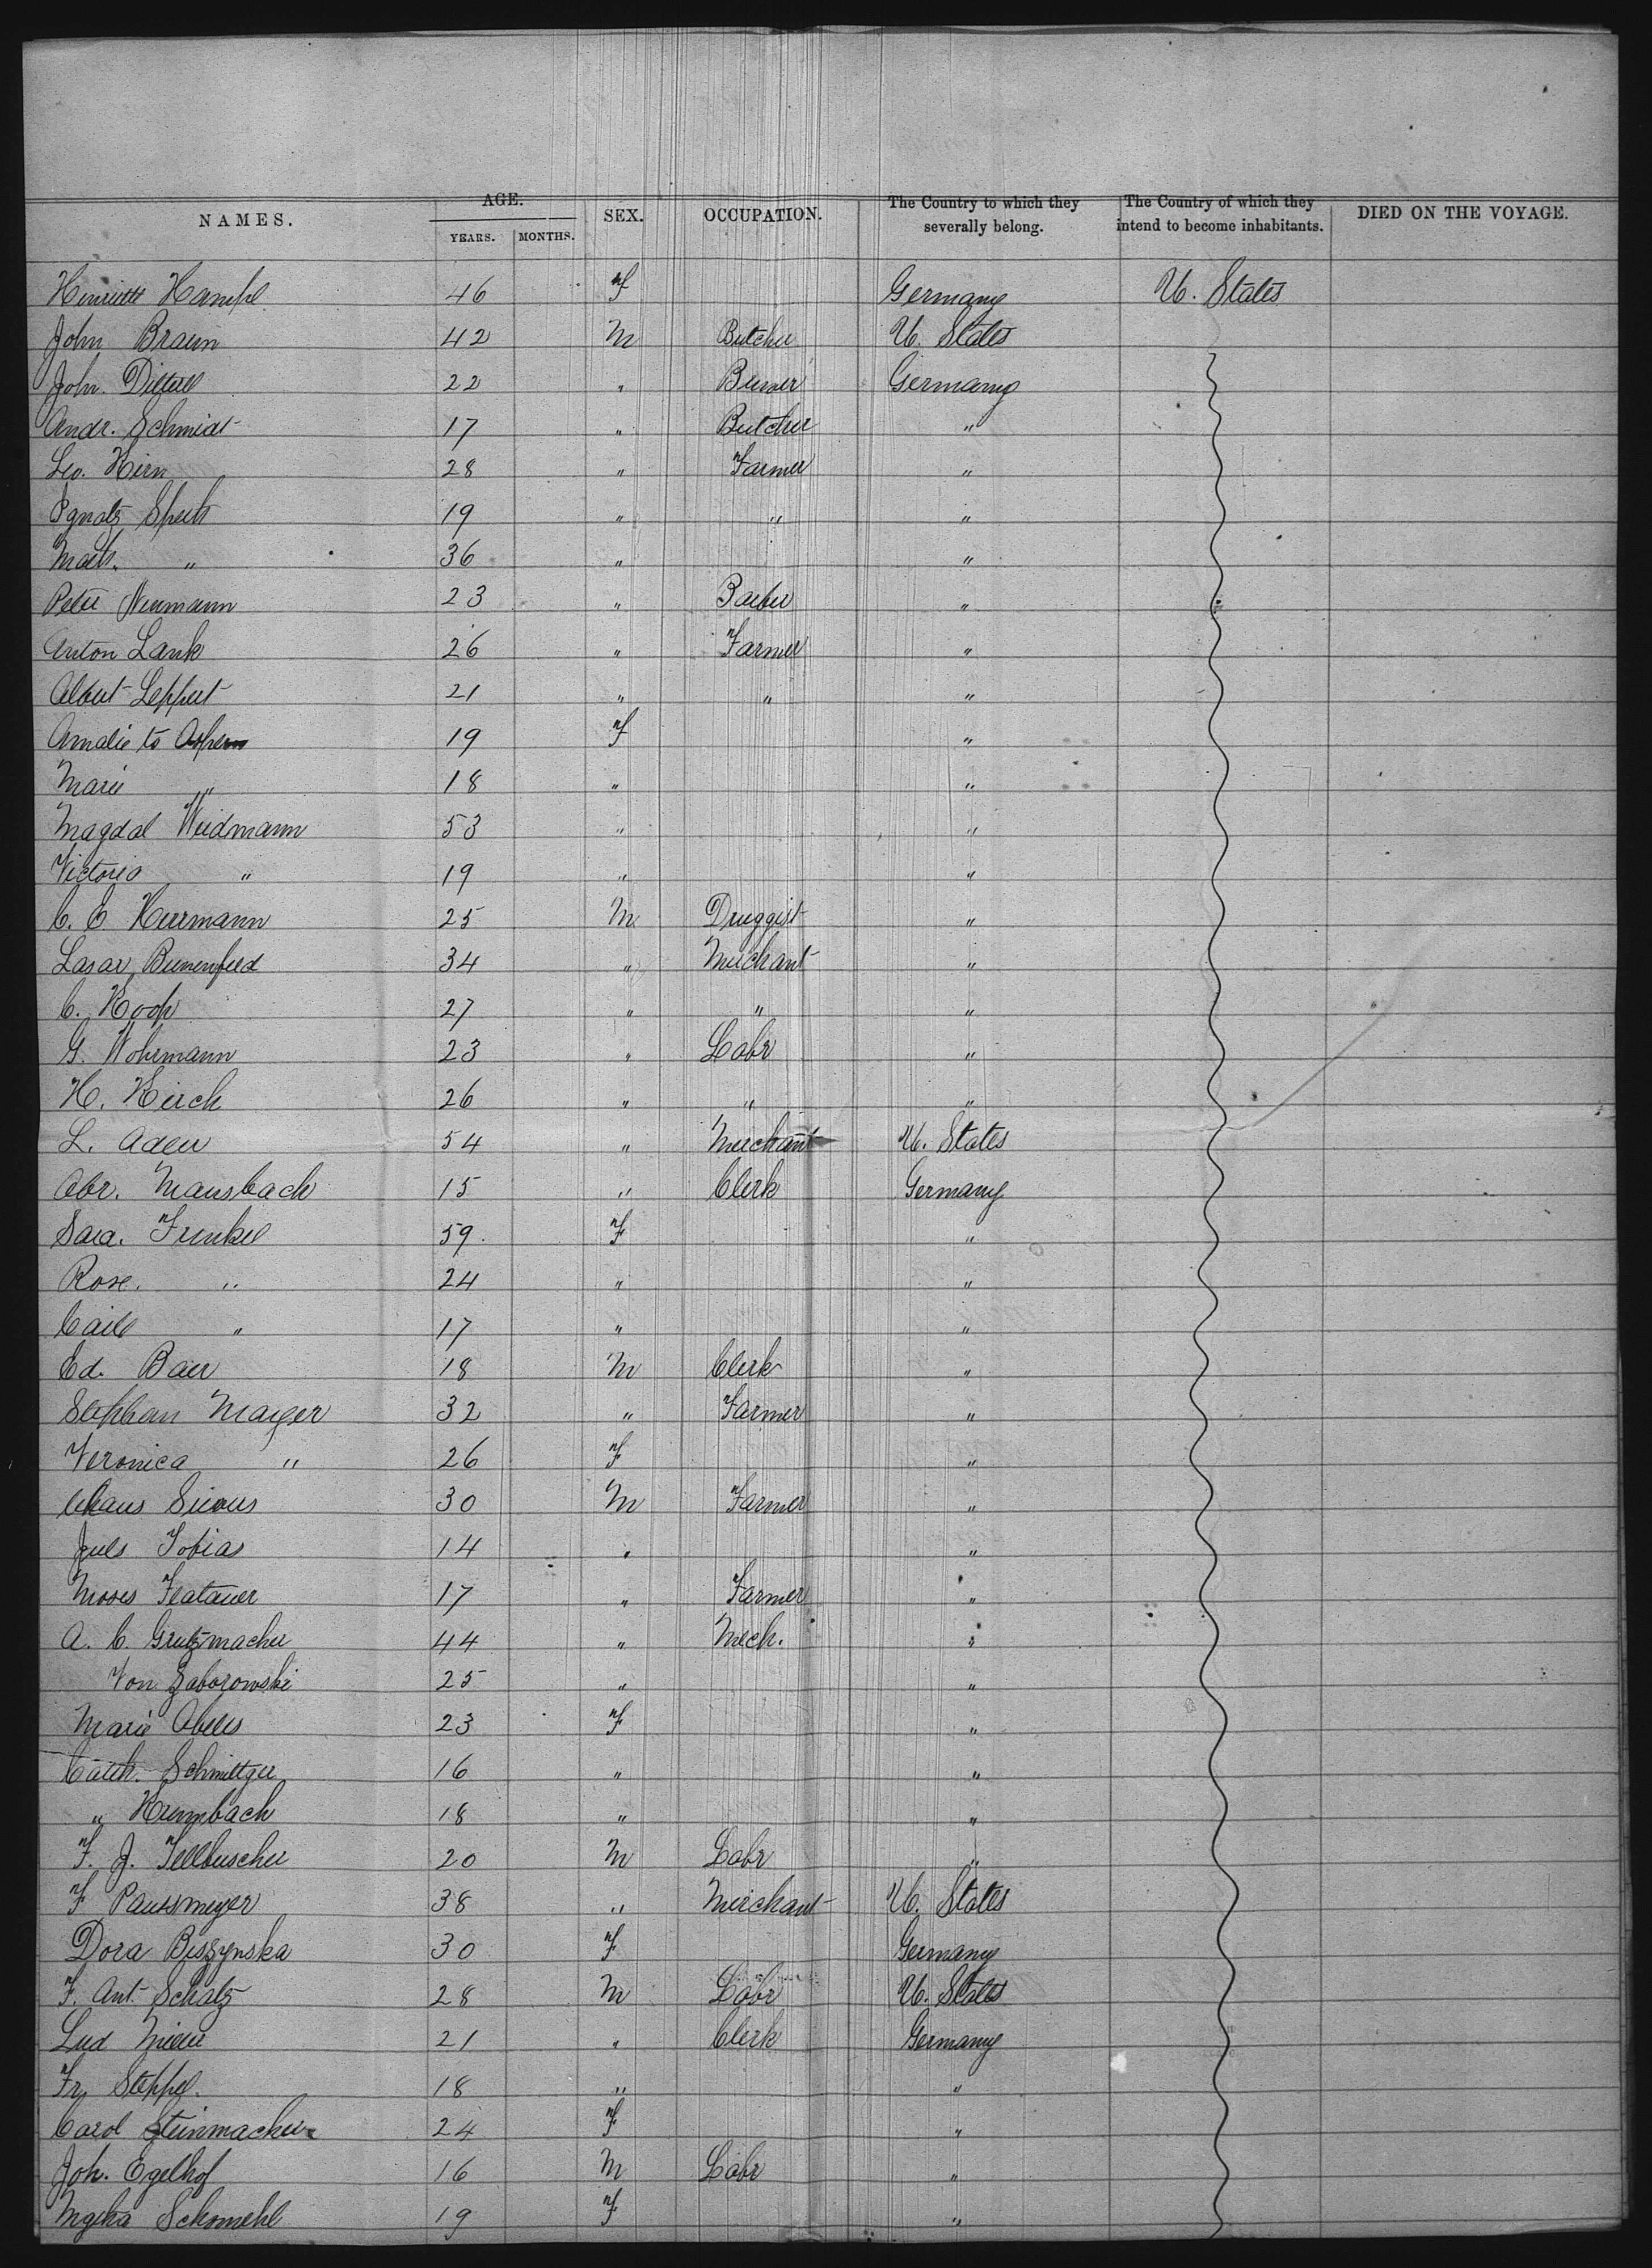 NAMES. AGE. SEX. OCCUPATION. The Country to which they severally belong. The Country of which they intend to become inhabitants. DIED ON THE VOYAGE.
YEARS. MONTHS.
Henriette Hampel 46 F Germany U. States
John Braun 42 M Butcher U. States
John. 22 " Brewer Germany
Andr. Schmidt 17 " Butcher "
Leo. Kirn 28 " Farmer "
Ignatz Speth 19 " " "
Math. " 36 " "
Peter Neumann 23 " Barber "
Anton Lank 26 " Farmer "
Albert Leppert 21 " " "
Amalie to Aspern 19 F "
Marie " 18 " "
Magdal Weidmann 53 " "
Victoria " 19 " "
C. E. Herrmann 25 M Druggist "
Lasar 34 " Merchant "
C. Koch 27 " " "
G. Wohrmann 23 " Labr "
H. Kirch 26 " " "
L. Adler 54 " Merchant U. States
Abr. Mansbach 15 " Clerk Germany
Sara. Frenkel 59 F "
Rose. " 24 " "
" 17 " "
Ed. Baer 18 M Clerk "
Stephan Mayer 32 " Farmer "
Veronica " 26 F "
Claus Sievers 30 M Farmer "
Juls Tobias 14 " "
Moses Flatauer 17 " Farmer "
A. C. Grutzmacher 44 " Mech. "
Von Zaborowski 25 " "
Marie Abeles 23 F "
Cath. Schmittger 16 " "
" Krumbach 18 " "
F. J. Tellbuscher 20 M Labr "
F Paussmeyer 38 " Merchant U. States
Dora Biszynska 30 F Germany
F. Ant. Schatz 28 M Labr U. States
Lud 21 " Clerk Germany
Fr. Stoppel. 18 " "
Carol Steinmacher 24 F "
Joh. Egelhof 16 M Labr "
Mgtha Schomehl 19 F "